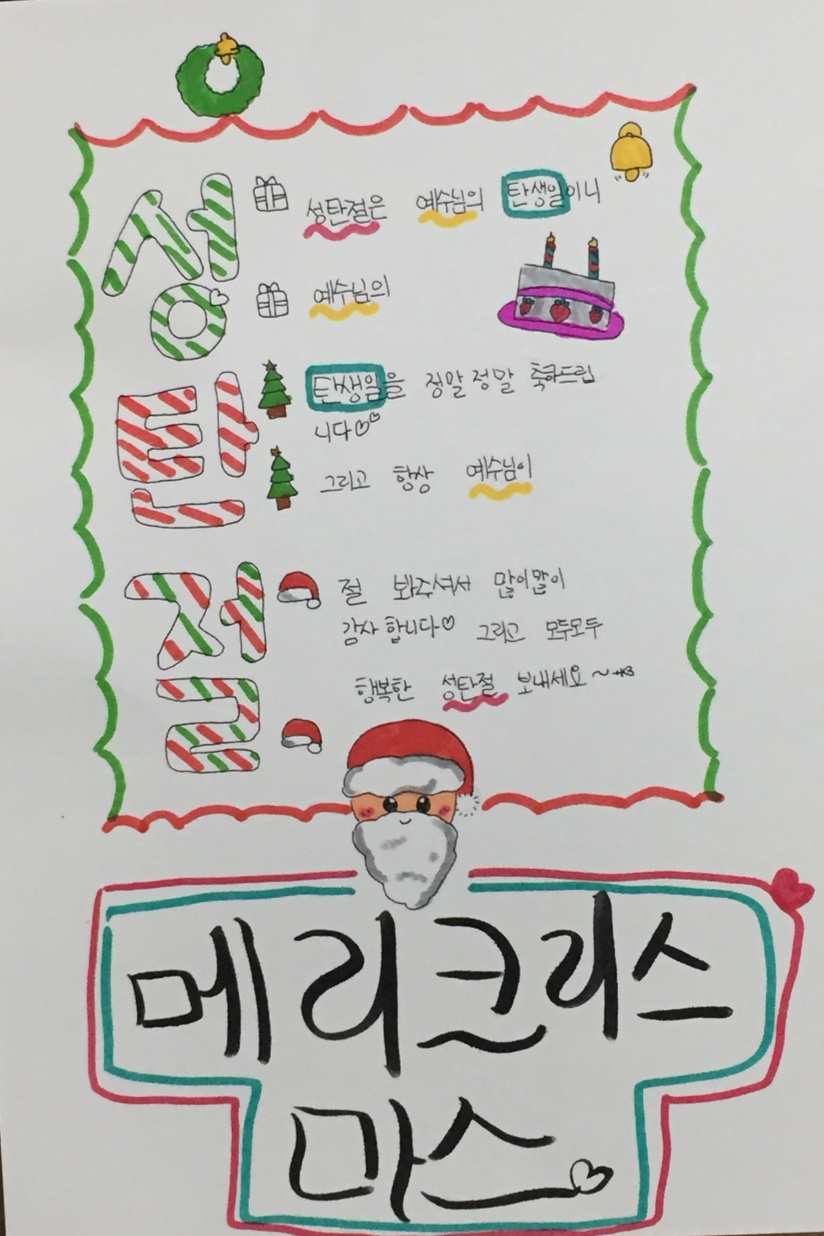 성
성탄절은 예수님의 탄생일이니
예수님의
탄
탄생일을 정말 정말 축하드립
니다
그리고 항상 예수님이
절
절 봐주셔서 많이많이
감사합니다 그리고 모두모두
행복한 성탄절 보내세요~
메리크리스
마스